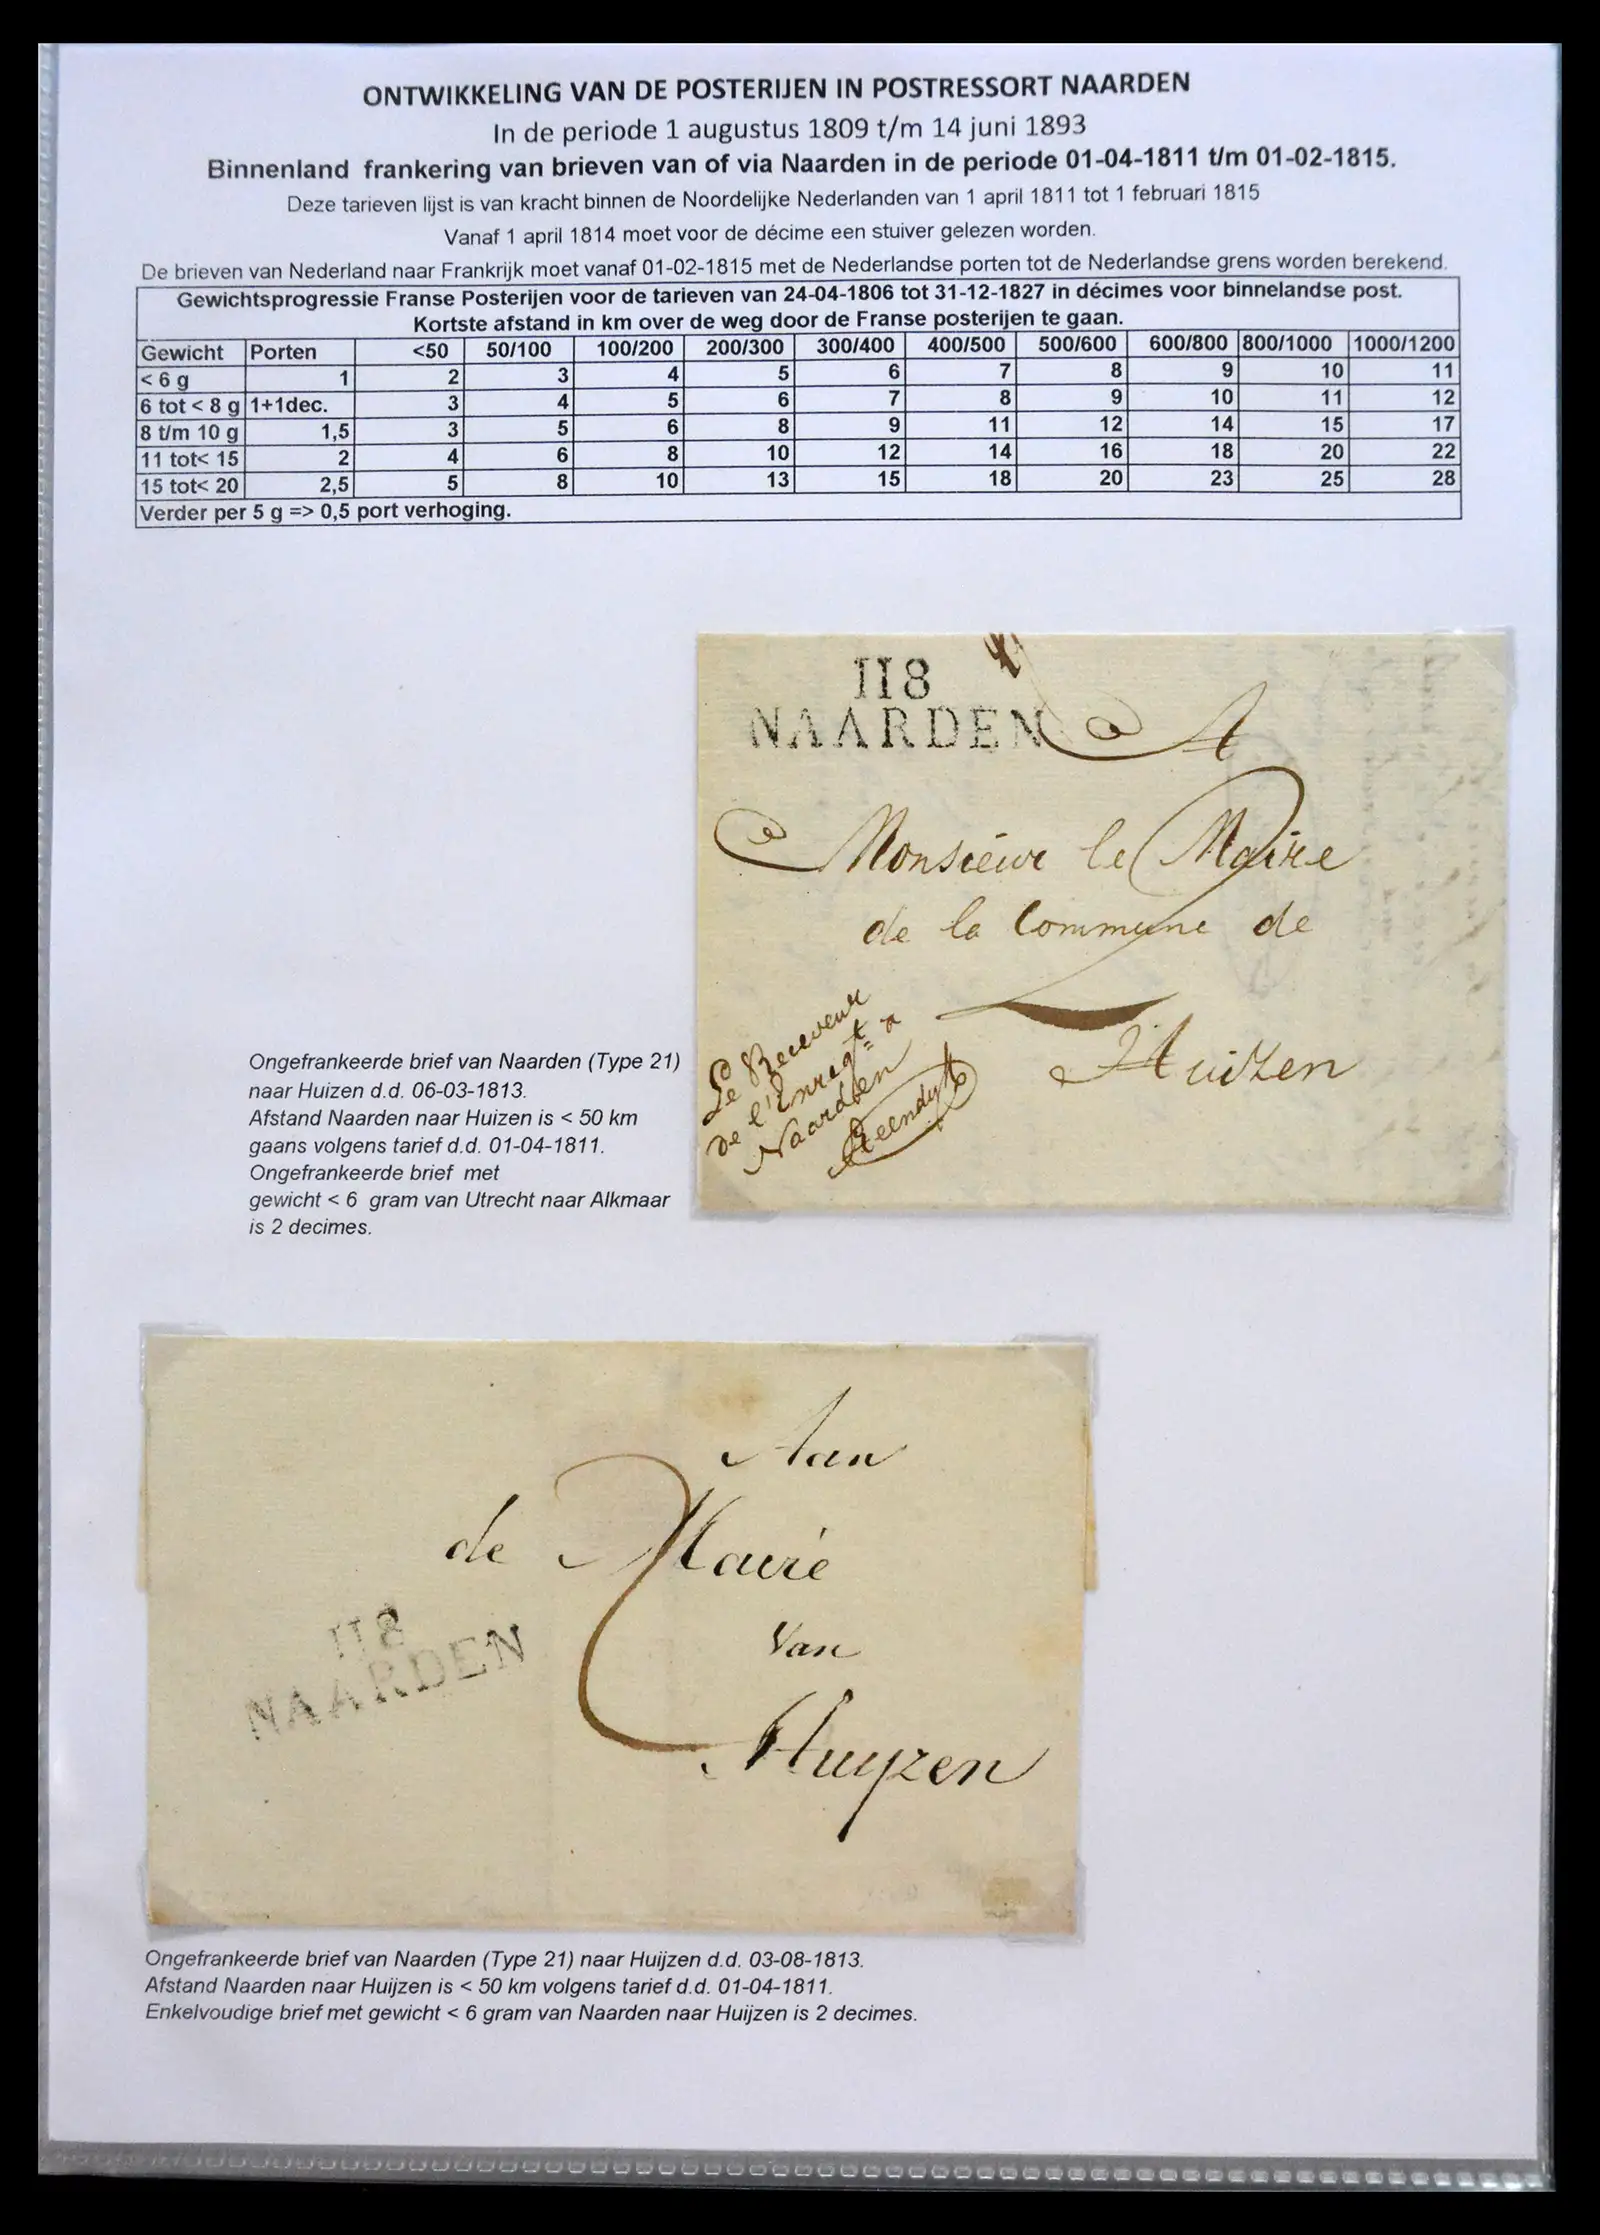 ONTWIKKELING VAN DE POSTERIJEN IN POSTRESSORT NAARDEN
In de periode 1 augustus 1809 t/m 14 juni 1893
Binnenland frankering van brieven van of via Naarden in de periode 01-04-1811 t/m 01-02-1815.
Deze tarieven lijst is van kracht binnen de Noordelijke Nederlanden van 1 april 1811 tot 1 februari 1815
Vanaf 1 april 1814 moet voor de décime een stuiver gelezen worden.
De brieven van Nederland naar Frankrijk moet vanaf 01-02-1815 met de Nederlandse porten tot de Nederlandse grens worden berekend.
Gewichtsprogressie Franse Posterijen voor de tarieven van 24-04-1806 tot 31-12-1827 in décimes voor binnelandse post.
Kortste afstand in km over de weg door de Franse posterijen te gaan.
Gewicht Porten <50 50/100 100/200 200/300 300/400 400/500 500/600 600/800 800/1000 1000/1200
< 6 g 1 2 3 4 5 6 7 8 9 10 11
6 tot < 8 g 1+1dec. 3 4 5 6 7 8 9 10 11 12
8 t/m 10 g 1,5 3 5 6 8 9 11 12 14 15 17
11 tot< 15 2 4 6 8 10 12 14 16 18 20 22
15 tot< 20 2,5 5 8 10 13 15 18 20 23 25 28
Verder per 5 g => 0,5 port verhoging.
118
NAARDEN
A
Monsieur le Maire
de la Commune de
Huizen
Le Receveur
de l'Enregt a
Naarden
Ongefrankeerde brief van Naarden (Type 21)
naar Huizen d.d. 06-03-1813.
Afstand Naarden naar Huizen is < 50 km
gaans volgens tarief d.d. 01-04-1811.
Ongefrankeerde brief met
gewicht < 6 gram van Utrecht naar Alkmaar
is 2 decimes.
Aan
de Maire
Van
Huyzen
2
118
NAARDEN
Ongefrankeerde brief van Naarden (Type 21) naar Huijzen d.d. 03-08-1813.
Afstand Naarden naar Huijzen is < 50 km volgens tarief d.d. 01-04-1811.
Enkelvoudige brief met gewicht < 6 gram van Naarden naar Huijzen is 2 decimes.